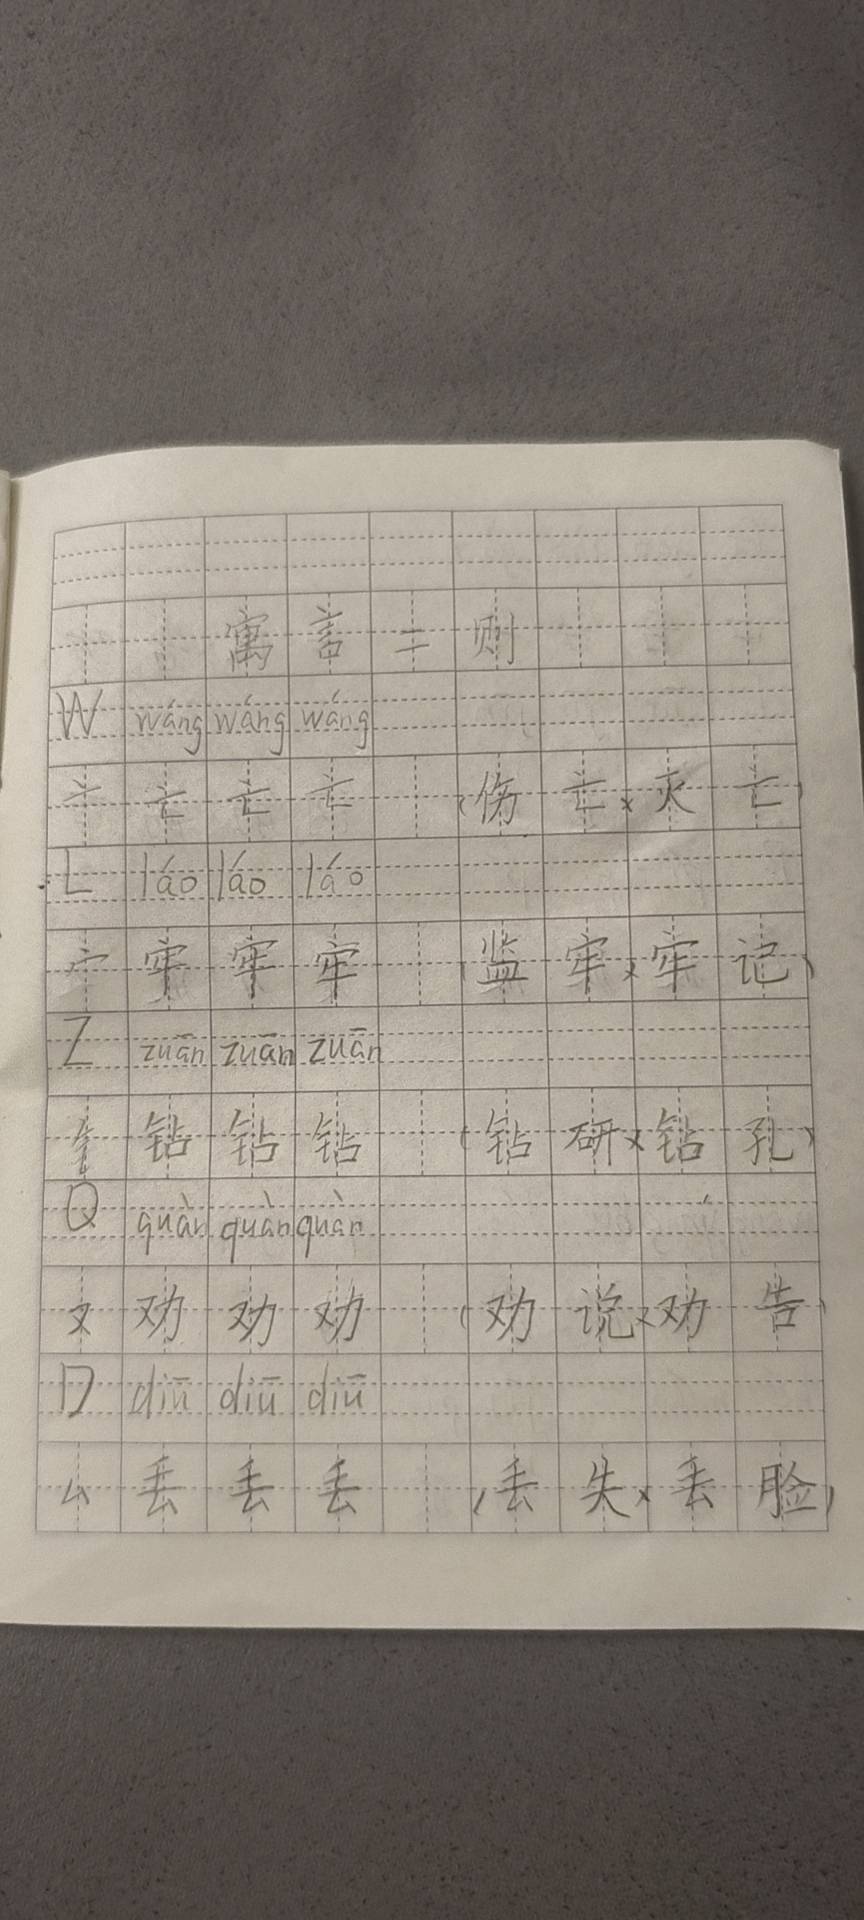 寓言二则
W wáng wáng wáng
亠 亡 亡 亡 (伤亡)(灭亡)
L láo láo láo
宀 牢 牢 牢 (监牢)(牢记)
Z zuān zuān zuān
钅 钻 钻 钻 (钻研)(钻孔)
Q quàn quàn quàn
又 劝 劝 劝 (劝说)(劝告)
D diū diū diū
厶 丢 丢 丢 (丢失)(丢脸)